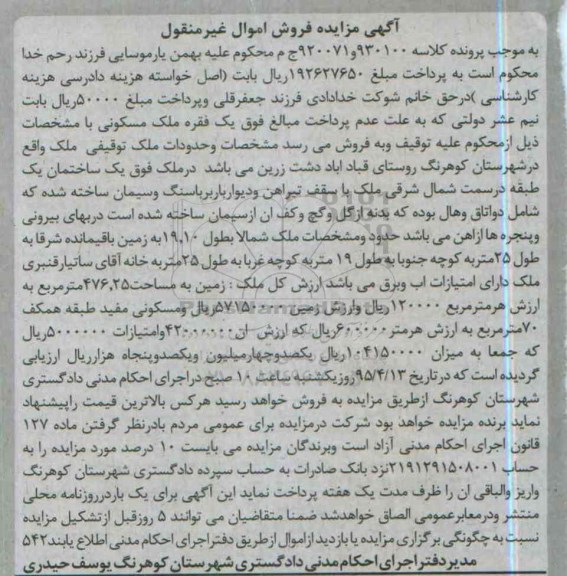 آگهی مزایده فروش اموال غیرمنقول
به موجب پرونده کلاسه ۹۳۰۱۰۰و۹۲۰۰۷۱ج م محکوم علیه بهمن یارموسایی فرزند رحم خدا
محکوم است به پرداخت مبلغ ۱۹۲۶۲۷۶۵۰ریال بابت (اصل خواسته هزینه دادرسی هزینه
کارشناسی )درحق خانم شوکت خدادادی فرزند جعفرقلی وپرداخت مبلغ ۵۰۰۰۰ریال بابت
نیم عشر دولتی که به علت عدم پرداخت مبالغ فوق یک فقره ملک مسکونی با مشخصات
ذیل ازمحکوم علیه توقیف وبه فروش می رسد مشخصات وحدودات ملک توقیفی ملک واقع
درشهرستان کوهرنگ روستای قباد اباد دشت زرین می باشد درملک فوق یک ساختمان یک
طبقه درسمت شمال شرقی ملک با سقف تیراهن ودیوارباربرباسنگ وسیمان ساخته شده که
شامل دواتاق وهال بوده که بدنه ازگل وگچ وکف ان ازسیمان ساخته شده است دربهای بیرونی
وپنجره ها ازاهن می باشد حدود ومشخصات ملک شمالا بطول ۱۹،۱۰به زمین باقیمانده شرقا به
طول ۲۵متربه کوچه جنوبا به طول ۱۹ متربه کوچه غربا به طول ۲۵متربه خانه آقای ساتیارقنبری
ملک دارای امتیازات اب وبرق می باشد ارزش کل ملک : زمین به مساحت۴۷۶،۲۵مترمربع به
ارزش هرمترمربع ۱۲۰۰۰۰ریال وارزش زمین۵۷۱۵۰۰۰۰ریال ومسکونی مفید طبقه همکف
۷۰مترمربع به ارزش هرمتر۶۰۰۰۰۰ریال که ارزش ان۴۲۰۰۰۰۰۰وامتیازات ۵۰۰۰۰۰۰ریال
که جمعا به میزان ۱۰۴۱۵۰۰۰۰ریال یکصدوچهارمیلیون ویکصدوپنجاه هزارریال ارزیابی
گردیده است که درتاریخ ۹۵/۴/۱۳روزیکشنبه ساعت ۱۰ صبح دراجرای احکام مدنی دادگستری
شهرستان کوهرنگ ازطریق مزایده به فروش خواهد رسید هرکس بالاترین قیمت راپیشنهاد
نماید برنده مزایده خواهد بود شرکت درمزایده برای عمومی مردم بادرنظر گرفتن ماده ۱۲۷
قانون اجرای احکام مدنی آزاد است وبرندگان مزایده می بایست ۱۰ درصد مورد مزایده را به
حساب ۲۱۹۱۲۹۱۵۰۸۰۰۱نزد بانک صادرات به حساب سپرده دادگستری شهرستان کوهرنگ
واریز والباقی ان را ظرف مدت یک هفته پرداخت نماید این آگهی برای یک باردرروزنامه محلی
منتشر ودرمعابرعمومی الصاق خواهدشد ضمنا متقاضیان می توانند ۵ روزقبل ازتشکیل مزایده
نسبت به چگونگی برگزاری مزایده یا بازدید ازاموال ازطریق دفتراجرای احکام مدنی اطلاع یابند۵۴۲
مدیردفتراجرای احکام مدنی دادگستری شهرستان کوهرنگ یوسف حیدری